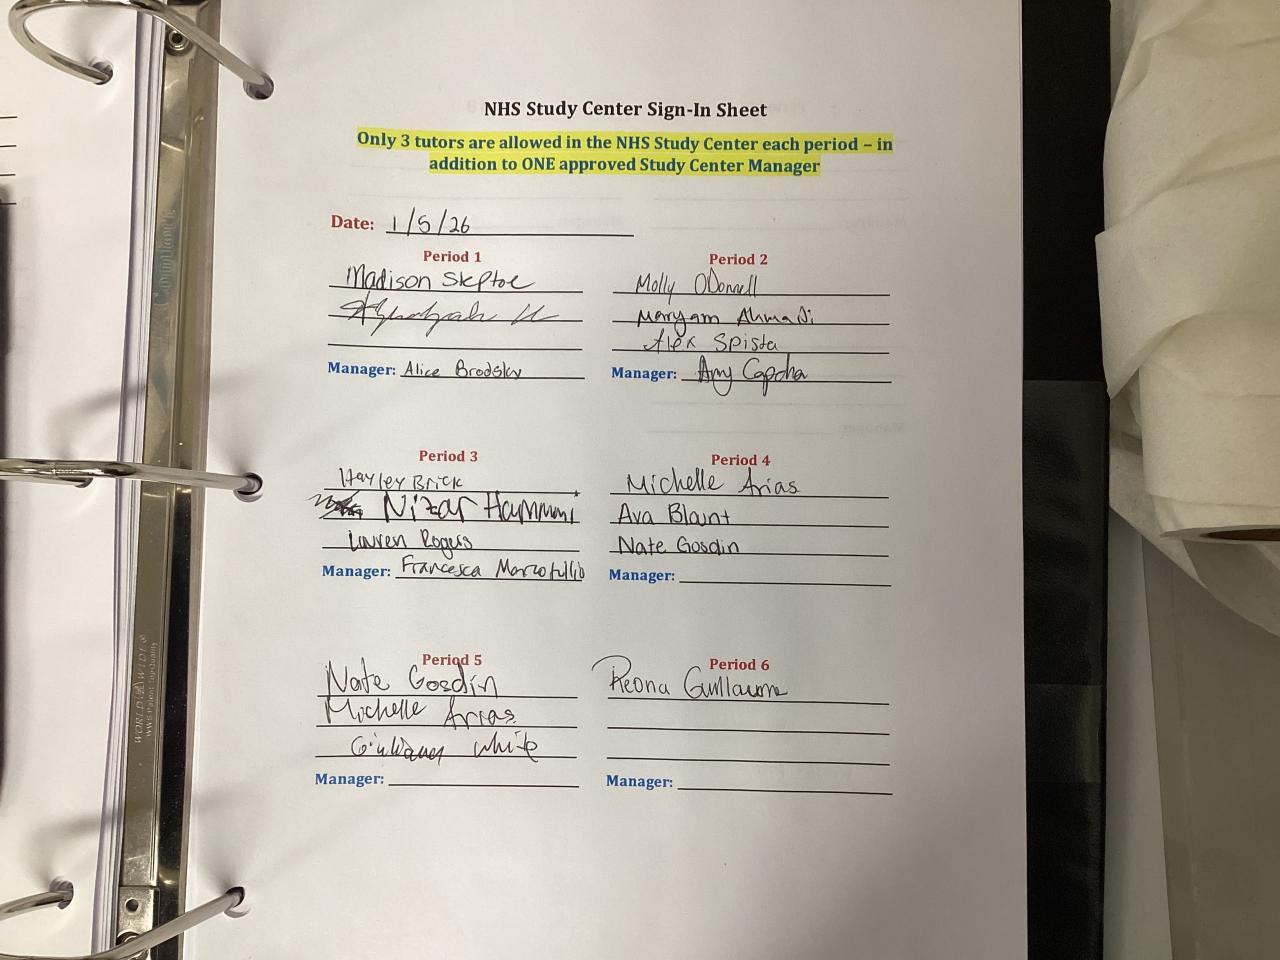 NHS Study Center Sign-In Sheet
Only 3 tutors are allowed in the NHS Study Center each period – in
addition to ONE approved Study Center Manager
Date: 1/5/26
Period 1
Madison Skeptoe
Manager: Alice Brodsky
Period 2
Molly ODonnell
Maryam Ahmadi
Alex Spista
Manager: Amy Capcha
Period 3
Hayley Brick
Nizar Hammami
Lauren Rogers
Manager: Francesca Marcotullio
Period 4
Michelle Arias
Ava Blount
Nate Gosdin
Manager:
Period 5
Nate Gosdin
Michelle Arias
White
Manager:
Period 6
Reona Guillaume
Manager:
WORLD WIDE